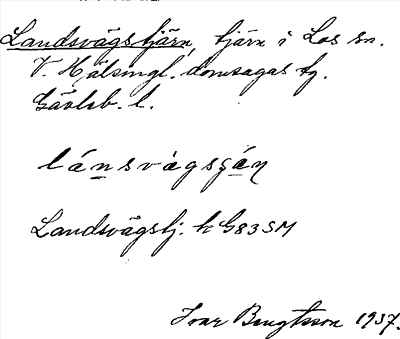 Landsvägstjärn, tjärn i Los sn.
V. Hälsingl. domsagas tg.
Gävleb. l.
lánsvàgsꞩä́ṇ
Landsvägstj. k G83SM
Ivar Bengtsson 1937.